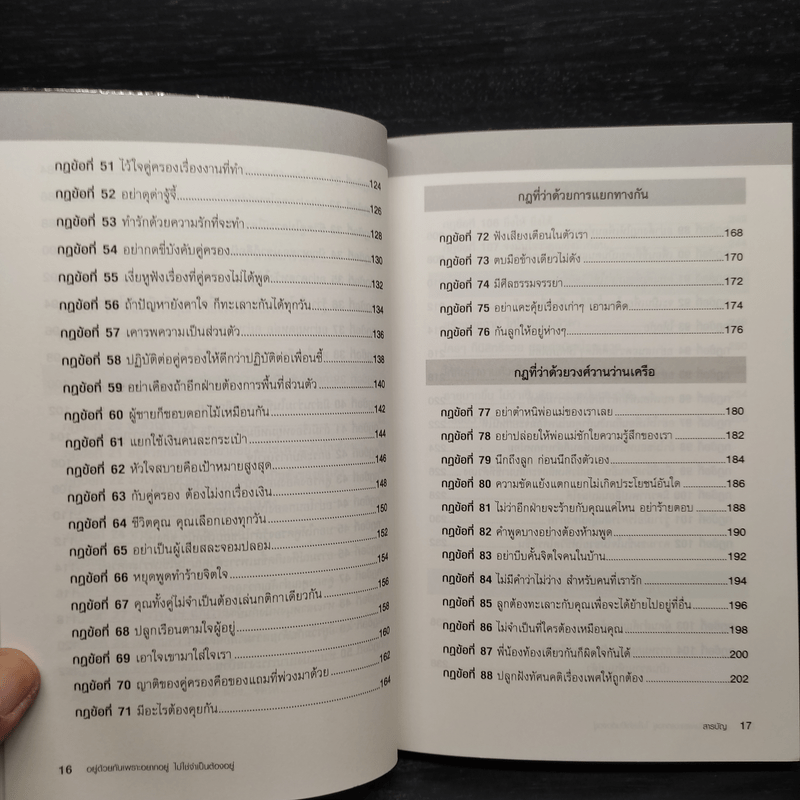 กฎข้อที่ 51 ไว้ใจคู่ครองเรื่องงานที่ทำ 124
กฎข้อที่ 52 อย่าดุด่าจู้จี้ 126
กฎข้อที่ 53 ทำรักด้วยความรักที่จะทำ 128
กฎข้อที่ 54 อย่ากดขี่บังคับคู่ครอง 130
กฎข้อที่ 55 เงี่ยหูฟังเรื่องที่คู่ครองไม่ได้พูด 132
กฎข้อที่ 56 ถ้าปัญหายังคาใจ ก็ทะเลาะกันได้ทุกวัน 134
กฎข้อที่ 57 เคารพความเป็นส่วนตัว 136
กฎข้อที่ 58 ปฏิบัติต่อคู่ครองให้ดีกว่าปฏิบัติต่อเพื่อนซี้ 138
กฎข้อที่ 59 อย่าเคืองถ้าอีกฝ่ายต้องการพื้นที่ส่วนตัว 140
กฎข้อที่ 60 ผู้ชายก็ชอบดอกไม้เหมือนกัน 142
กฎข้อที่ 61 แยกใช้เงินคนละกระเป๋า 144
กฎข้อที่ 62 หัวใจสบายคือเป้าหมายสูงสุด 146
กฎข้อที่ 63 กับคู่ครอง ต้องไม่งกเรื่องเงิน 148
กฎข้อที่ 64 ชีวิตคุณ คุณเลือกเองทุกวัน 150
กฎข้อที่ 65 อย่าเป็นผู้เสียสละจอมปลอม 152
กฎข้อที่ 66 หยุดพูดทำร้ายจิตใจ 154
กฎข้อที่ 67 คุณทั้งคู่ไม่จำเป็นต้องเล่นกติกาเดียวกัน 156
กฎข้อที่ 68 ปลูกเรือนตามใจผู้อยู่ 158
กฎข้อที่ 69 เอาใจเขามาใส่ใจเรา 160
กฎข้อที่ 70 ญาติของคู่ครองคือของแถมที่พ่วงมาด้วย 162
กฎข้อที่ 71 มีอะไรต้องคุยกัน 164
16 อยู่ด้วยกันเพราะอยากอยู่ ไม่ใช่จำเป็นต้องอยู่
กฎที่ว่าด้วยการแยกทางกัน
กฎข้อที่ 72 ฟังเสียงเตือนในตัวเรา 168
กฎข้อที่ 73 ตบมือข้างเดียวไม่ดัง 170
กฎข้อที่ 74 มีศีลธรรมจรรยา 172
กฎข้อที่ 75 อย่าแคะคุ้ยเรื่องเก่าๆ เอามาคิด 174
กฎข้อที่ 76 กันลูกให้อยู่ห่างๆ 176
กฎที่ว่าด้วยวงศ์วานว่านเครือ
กฎข้อที่ 77 อย่าตำหนิพ่อแม่ของเราเลย 180
กฎข้อที่ 78 อย่าปล่อยให้พ่อแม่ชักใยความรู้สึกของเรา 182
กฎข้อที่ 79 นึกถึงลูก ก่อนนึกถึงตัวเอง 184
กฎข้อที่ 80 ความขัดแย้งแตกแยกไม่เกิดประโยชน์อันใด 186
กฎข้อที่ 81 ไม่ว่าอีกฝ่ายจะร้ายกับคุณแค่ไหน อย่าร้ายตอบ 188
กฎข้อที่ 82 คำพูดบางอย่างต้องห้ามพูด 190
กฎข้อที่ 83 อย่าบีบคั้นจิตใจคนในบ้าน 192
กฎข้อที่ 84 ไม่มีคำว่าไม่ว่าง สำหรับคนที่เรารัก 194
กฎข้อที่ 85 ลูกต้องทะเลาะกับคุณเพื่อจะได้ย้ายไปอยู่ที่อื่น 196
กฎข้อที่ 86 ไม่จำเป็นที่ใครต้องเหมือนคุณ 198
กฎข้อที่ 87 พี่น้องท้องเดียวกันก็ผิดใจกันได้ 200
กฎข้อที่ 88 ปลูกฝังทัศนคติเรื่องเพศให้ถูกต้อง 202
สารบัญ 17